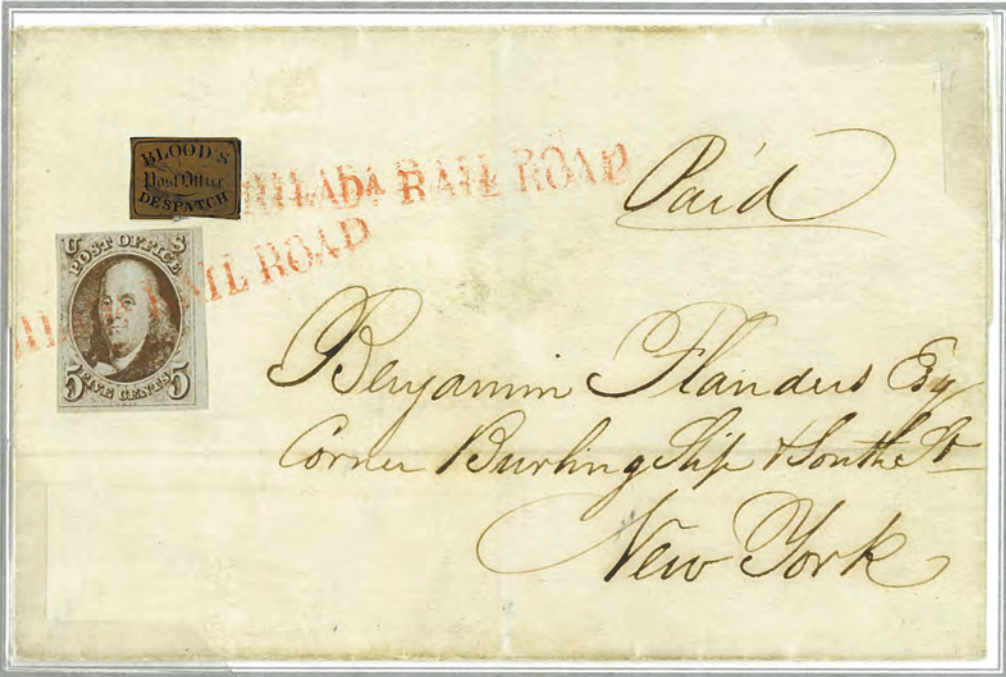 BLOOD'S
Post Office
DESPATCH
PHILADA RAIL ROAD
Paid
PHILADA RAIL ROAD
U S
POST OFFICE
5 FIVE CENTS 5
Benjamin Flanders Esq
Corner Burling Slip & South St
New York